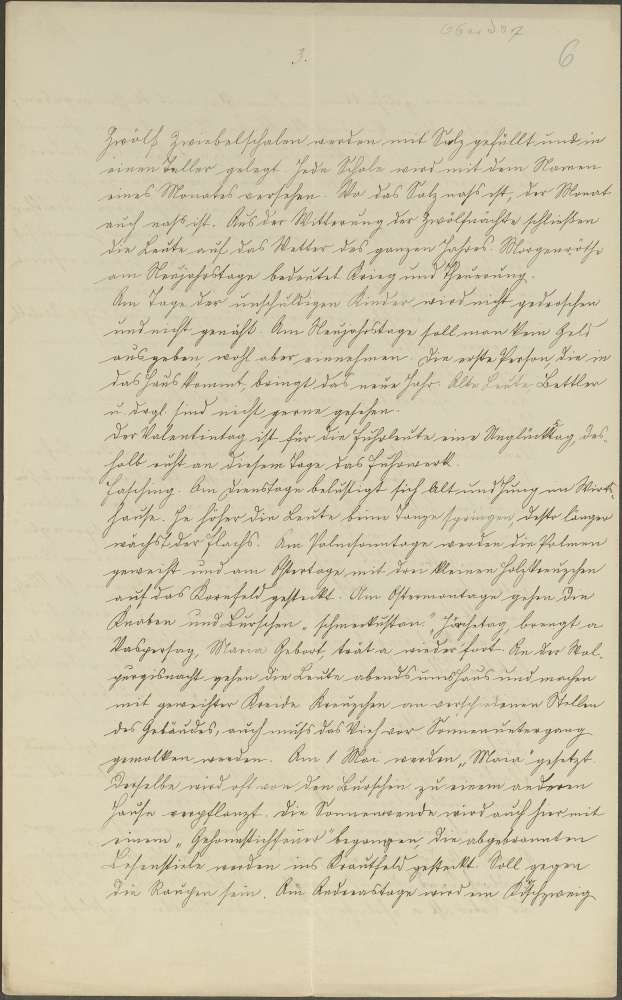 3.
6
Zwölf Zwiebelschalen werden mit Salz gefüllt und in
einen Teller gelegt. Jede Schale wird mit dem Namen
eines Monates versehen. Wo das Salz naß ist, der Monat
auch naß ist. Aus der Witterung der Zwölfnächte schließen
die Leute auf das Wetter des ganzen Jahres. Morgenröthe
am Neujahrstage bedeutet Krieg und Theuerung.
Am Tage der unschuldigen Kinder wird nicht gedroschen
und nicht genäht. Am Neujahrstage soll man kein Geld
ausgeben wohl aber einnehmen. Die erste Person, die in
das Haus kommt, bringt das neue Jahr. Alte Leute Bettler
u. drgl. sind nicht gerne gesehen.
Der Valentintag ist für die Fuhrleute eine Unglücktag, des-
halb ruht an diesem Tage das Fuhrwerk.
Fasching. Am Dienstage belustigt sich Alt und Jung im Wirts-
hause. Je höher die Leute beim Tanze springen, desto länger
wächst der Flachs. Am Palmsonntage werden die Palmen
geweiht und am Ostertage mit drei kleinen Holzkreuzchen
auf das Kornfeld gesteckt. Am Ostermontage gehen die
Knaben und Burschen „schmeckustan." brengt a
Vaspersag, Maria Geboot trät a wieder fort. An der Wal-
purgisnacht gehen die Leute abends ums Haus und machen
mit geweihter Kreide Kreuzchen an verschiedenen Stellen
des Gebäudes, auch muß das Vieh vor Sonnenuntergang
gemolken werden. Am 1 Mai werden „Maia" gesetzt.
Derselbe wird oft von den Burschen zu einem anderen
Hause verpflanzt. Die Sonnenwende wird auch hier mit
einem begangen, die abgebrannten
Besenstiele werden ins Krautfeld gesteckt. Soll gegen
die Raupen sein. Am Andreastage wird ein Kischzweig